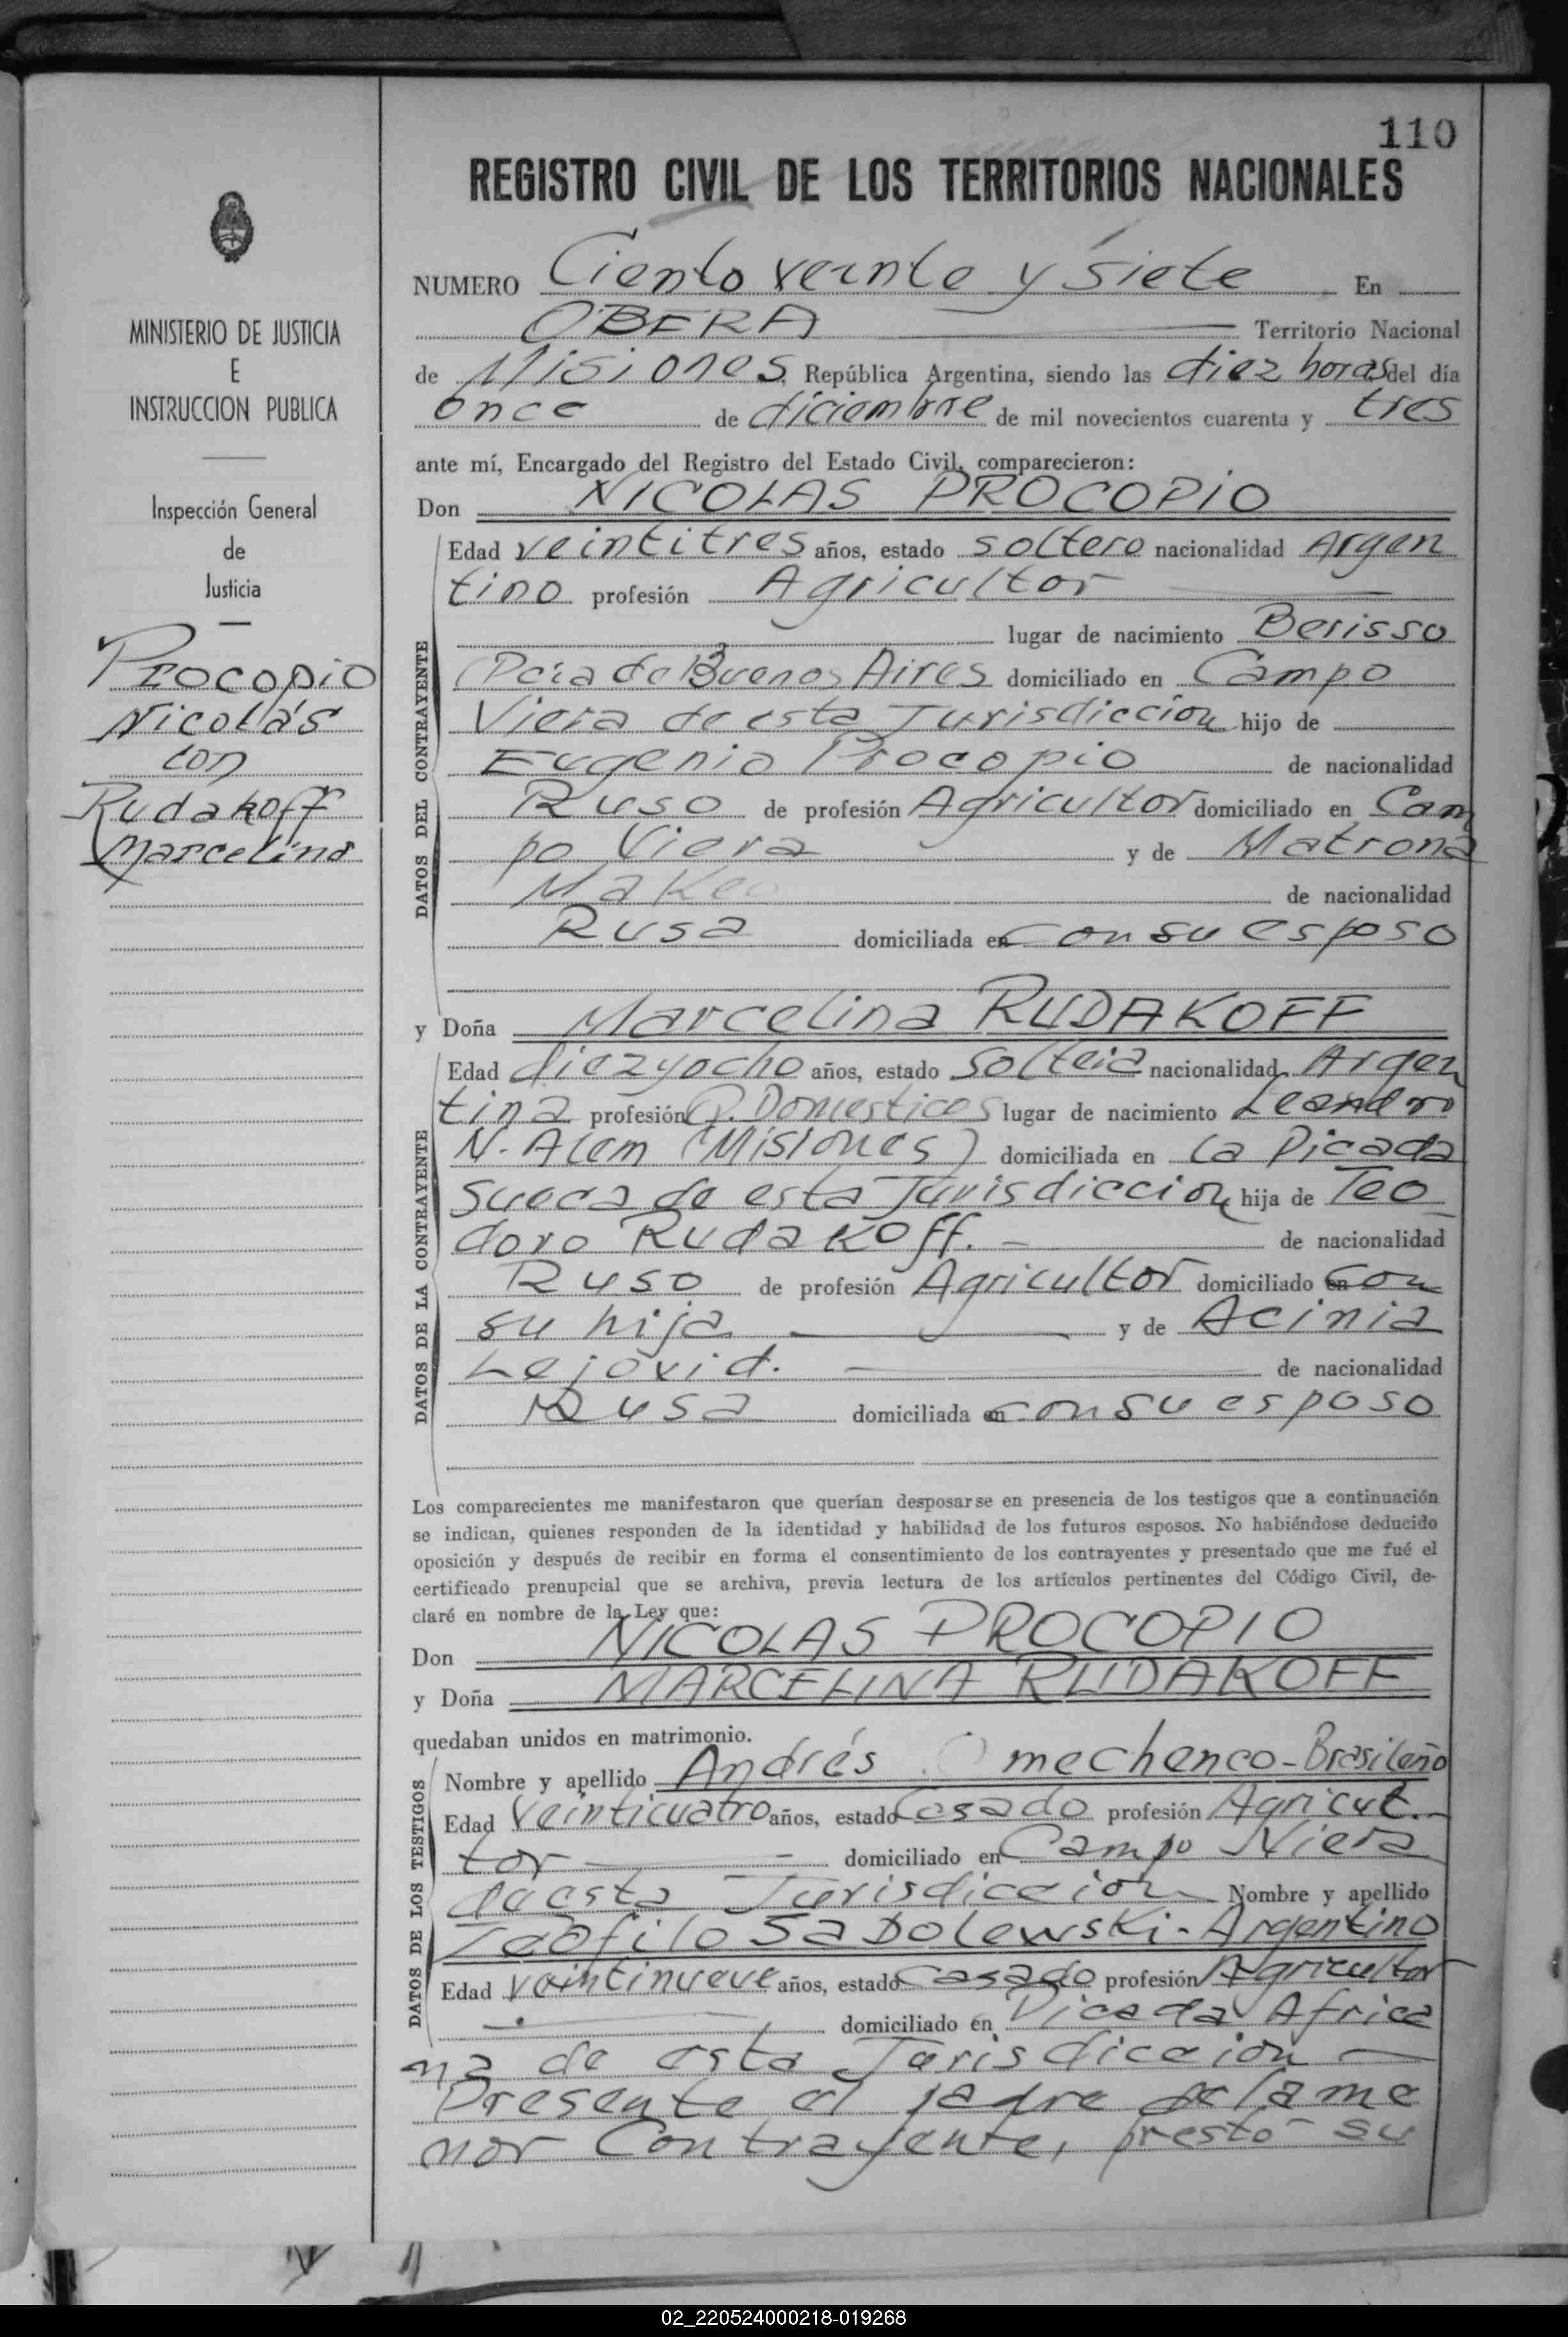 110
REGISTRO CIVIL DE LOS TERRITORIOS NACIONALES
MINISTERIO DE JUSTICIA
E
INSTRUCCION PUBLICA
Inspección General
de
Justicia
Procopio
Nicolás
con
Rudakoff
Marcelina
NUMERO Ciento veinte y siete En
OBERA Territorio Nacional
de Misiones República Argentina, siendo las diez horas del día
once de diciembre de mil novecientos cuarenta y tres
ante mí, Encargado del Registro del Estado Civil, comparecieron:
Don NICOLAS PROCOPIO
DATOS DEL CONTRAYENTE
Edad veintitres años, estado soltero nacionalidad Argen
tino profesión Agricultor
lugar de nacimiento Berisso
(Pcia de Buenos Aires domiciliado en Campo
Viera de esta Jurisdiccion hijo de
Eugenio Procopio de nacionalidad
Ruso de profesión Agricultor domiciliado en Cam
po Viera y de Matrona
de nacionalidad
Rusa domiciliada en con su esposo
y Doña Marcelina RUDAKOFF
DATOS DE LA CONTRAYENTE
Edad diez y ocho años, estado Soltera nacionalidad Argen
tina profesión Q. Domesticos lugar de nacimiento Leandro
N. Alem (Misiones) domiciliada en la Picada
Sueca de esta Jurisdiccion hija de Teo
doro Rudakoff. de nacionalidad
Ruso de profesión Agricultor domiciliado en con
su hija y de Acinia
Lejovid. de nacionalidad
Rusa domiciliada en con su esposo
Los comparecientes me manifestaron que querían desposarse en presencia de los testigos que a continuación
se indican, quienes responden de la identidad y habilidad de los futuros esposos. No habiéndose deducido
oposición y después de recibir en forma el consentimiento de los contrayentes y presentado que me fué el
certificado prenupcial que se archiva, previa lectura de los artículos pertinentes del Código Civil, de-
claré en nombre de la Ley que:
Don NICOLAS PROCOPIO
y Doña MARCELINA RUDAKOFF
quedaban unidos en matrimonio.
DATOS DE LOS TESTIGOS
Nombre y apellido Andrés Omechenco - Brasileño
Edad Veinticuatro años, estado Casado profesión Agricul-
tor domiciliado en Campo Viera
de esta Jurisdiccion Nombre y apellido
Teofilo SaDolewski - Argentino
Edad veintinueve años, estado casado profesión Agricultor
domiciliado en Picada Africa
na de esta Jurisdiccion
Presente el padre de la me
nor Contrayente, prestó su
02_220524000218-019268